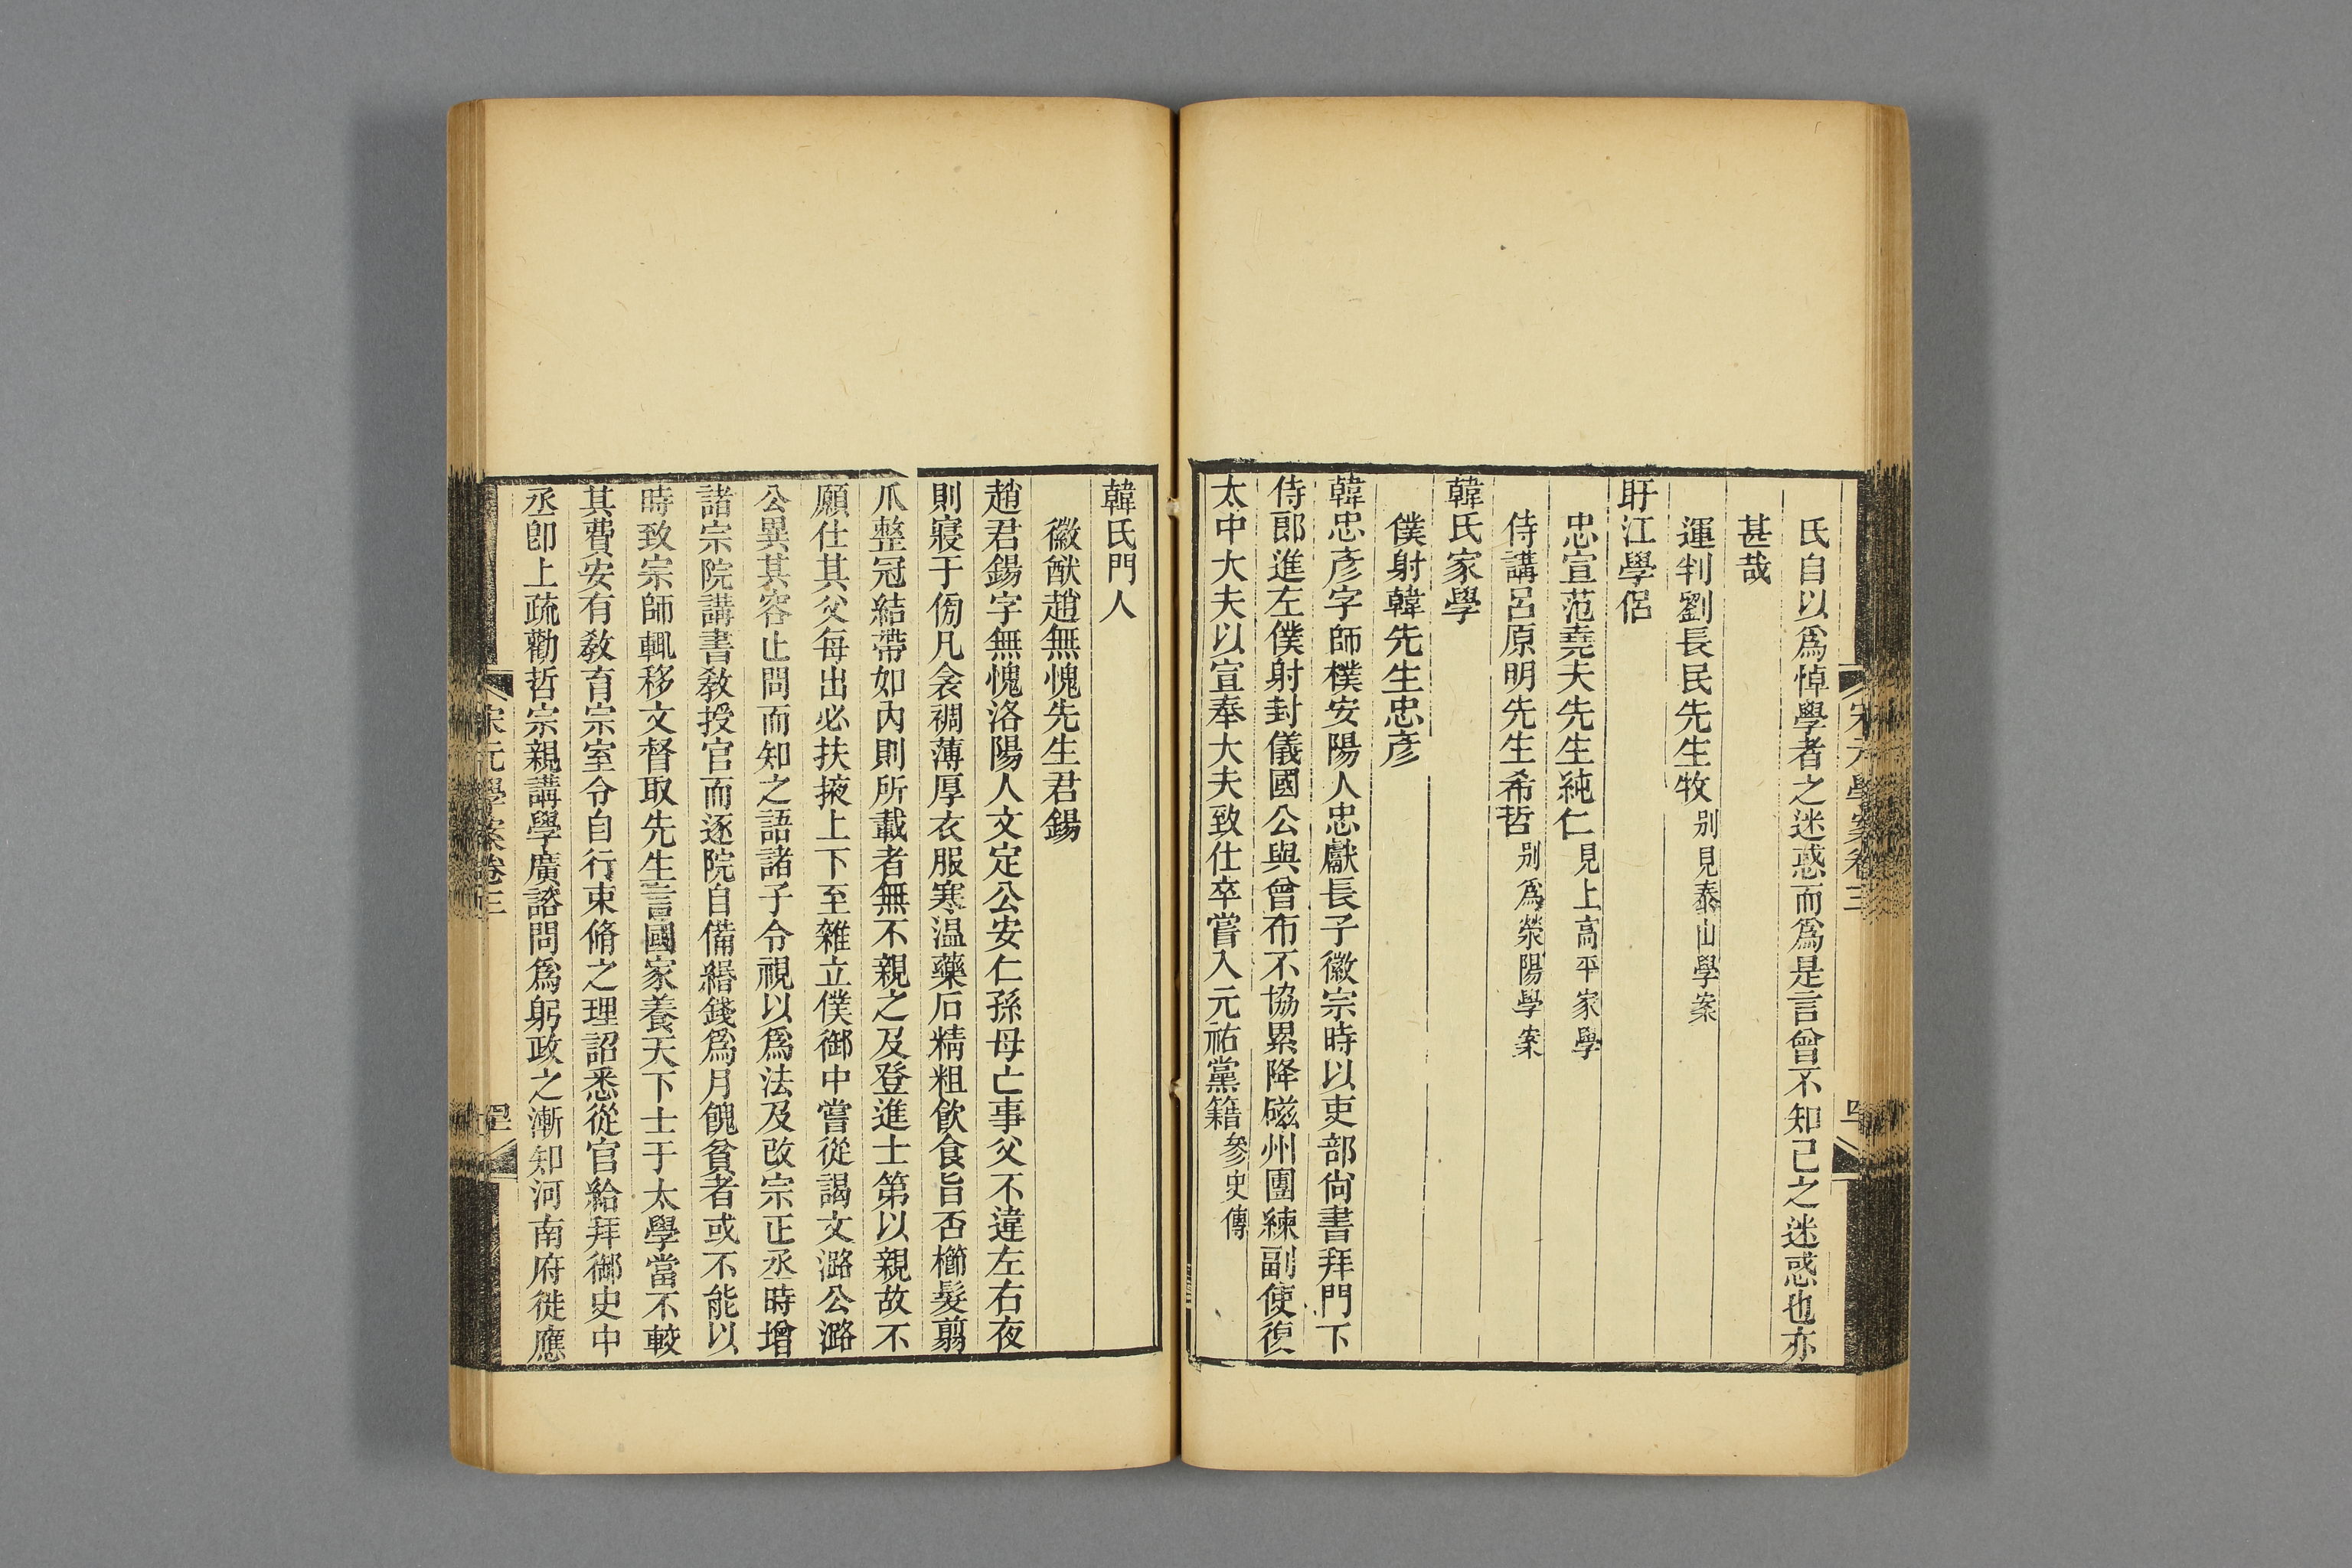 氏自以爲悼學者之迷惑而爲是言曾不知己之迷惑也亦
甚哉
運判劉長民先生牧别見泰山學案
盱江學侶
忠宣范堯夫先生純仁見上高平家學
侍講呂原明先生希哲别爲滎陽學案
韓氏家學
僕射韓先生忠彥
韓忠彥字師樸安陽人忠獻長子徽宗時以吏部尙書拜門下
侍郎進左僕射封儀國公與曾布不協累降磁州團練副使復
太中大夫以宣奉大夫致仕卒嘗入元祐黨籍參史傳
韓氏門人
徽猷趙無愧先生君錫
趙君錫字無愧洛陽人文定公安仁孫母亡事父不違左右夜
則寢于傍凡衾裯薄厚衣服寒温藥石精粗飲食旨否櫛髮翦
爪整冠結帶如內則所載者無不親之及登進士第以親故不
願仕其父每出必扶掖上下至雜立僕御中嘗從謁文潞公潞
公異其容止問而知之語諸子令視以爲法及改宗正丞時增
諸宗院講書敎授官而逐院自備緡錢爲月餽貧者或不能以
時致宗師輒移文督取先生言國家養天下士于太學當不較
其費安有敎育宗室令自行束脩之理詔悉從官給拜御史中
丞卽上疏勸哲宗親講學廣諮問爲躬政之漸知河南府徙應
宋元學案卷三